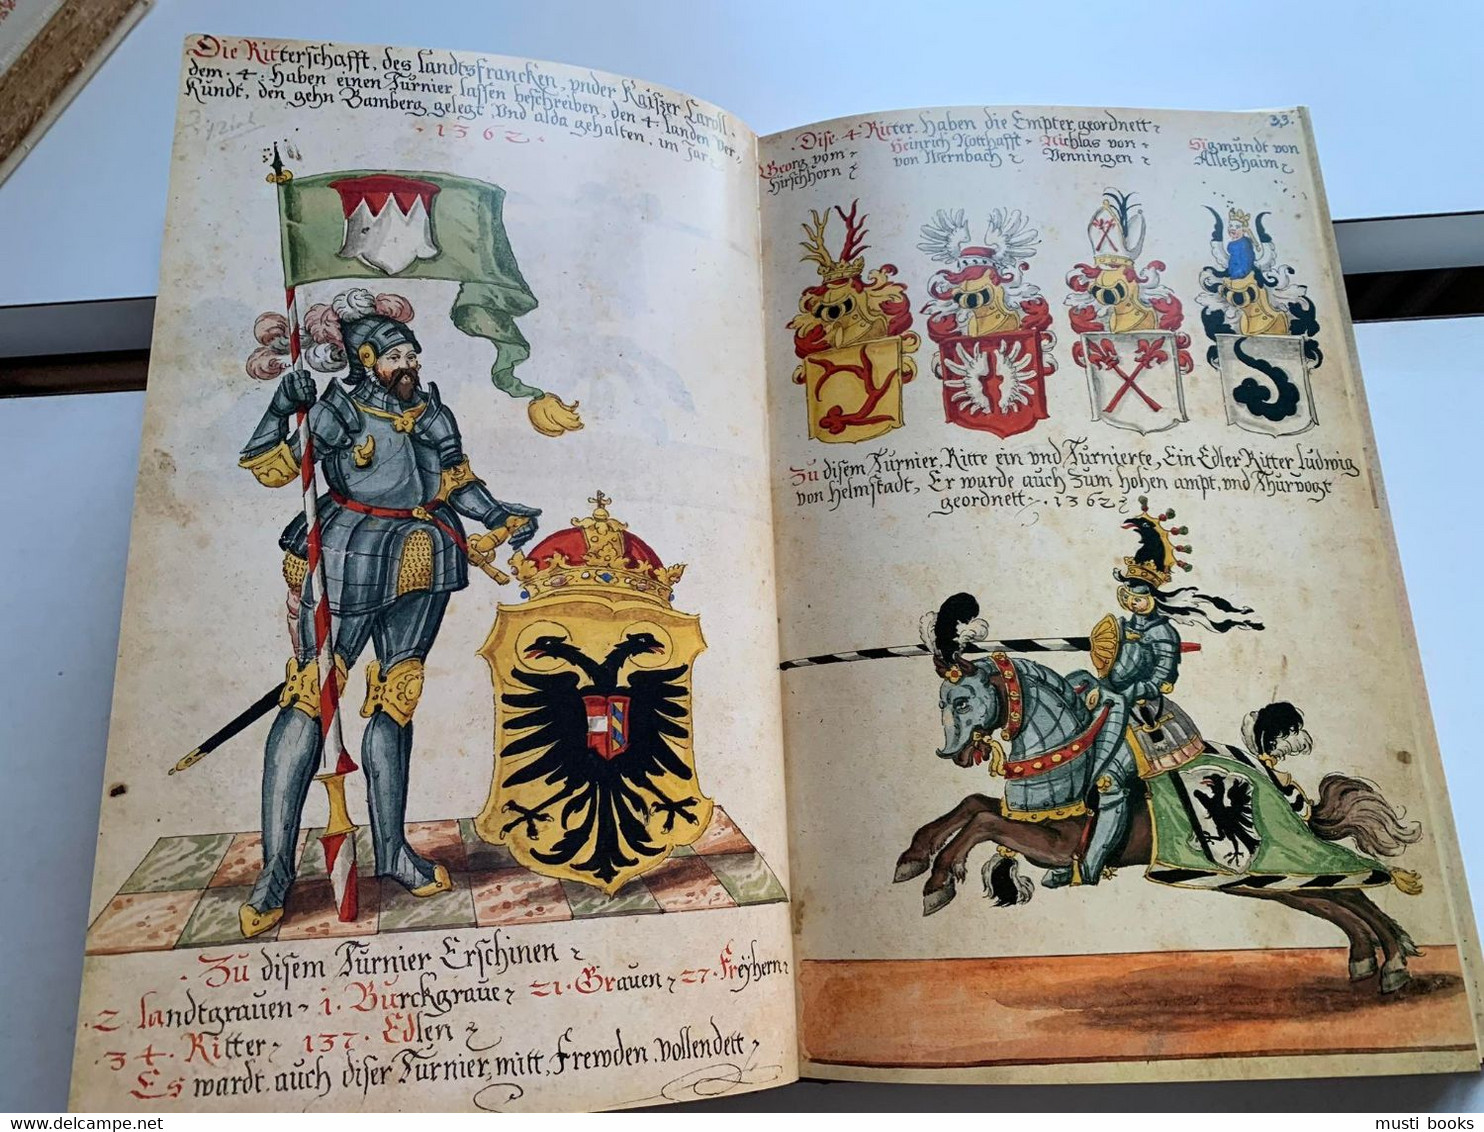 Die Ritterschafft, des Landtsfrancken, vnder Kaiszer Caroll.
dem. 4. Haben einen Turnier lassen beschreiben, den 4. Landen Ver-
kundt, den gehn Bamberg gelegt, Vnd alda gehalten. im Jar.
.1362.
.Zu disem Turnier Erschinen
.2 Landtgrauen, 1. Burckgraue, 21. Grauen, 27. Freyhern,
.34. Ritter, 137. Edlen
Es wardt. auch diser Turnier, mitt, Fremden. vollendett,
33.
.Dise. 4. Ritter. Haben die Empter geordnett
Georg vom
Hirschhorn
Heinrich Notthafft
von Wernbach
Nichlas von
Venningen
Sigmundt von
Alletzhaim
Zu disem Turnier, Ritte ein vnd Turnierte, Ein Edler Ritter Ludwig
von Helmstadt, Er warde auch Zum hohen ampt, vnd Thurvogt
geordnett. .1362
musti books